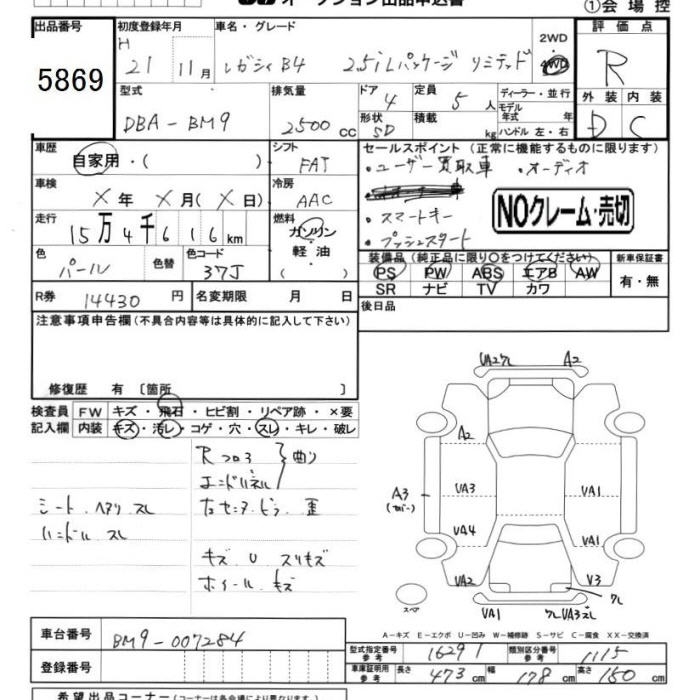 オークション出品申込書
①会場控
出品番号
5869
初度登録年月
H 21 11月
車名・グレード
レガシィB4 2.5iLパッケージ リミテッド
2WD
4WD
評価点
R
外装 内装
D C
型式
DBA-BM9
排気量
2500 cc
ドア
4
形状
SD
定員
5 人
積載
kg
ディーラー・並行
モデル
年式 年
ハンドル 左・右
車歴
自家用・( )
シフト
FAT
車検
×年 ×月(×日)
冷房
AAC
走行
15万4千616km
燃料
ガソリン
軽油
( )
色
パール
色替
色コード
37J
R券
14430円
名変期限 月 日
セールスポイント (正常に機能するものに限ります)
・ユーザー買取車 ・オーディオ
・スマートキー
・プッシュスタート
NOクレーム・売切
装備品 (純正品に限り○をつけてください)
PS PW ABS エアB AW
SR ナビ TV カワ
新車保証書
有・無
後日品
注意事項申告欄(不具合内容等は具体的に記入して下さい)
修復歴 有 〔箇所 〕
検査員 FW キズ・飛石・ヒビ割・リペア跡・×要
記入欄 内装 キズ・汚レ・コゲ・穴・スレ・キレ・破レ
Rフロ3
エンドパネル
曲り
シート、ヘタリ スレ
ハンドル スレ
右セニタ ピラ 歪
キズ U スリキズ
ホイール キズ
VA2クレ A2
A2
A3
(カバー)
VA3 VA1
VA4 VA1
VA2 V3
クレ
VA1 クレVA3ズレ
スペア
A-キズ E-エクボ U-凹み W-補修跡 S-サビ C-腐食 XX-交換済
車台番号
BM9-007284
登録番号
型式指定番号
参考
16291
類別区分番号
参考
1115
車庫証明用
参考
長さ 473 cm 幅 178 cm 高さ 150 cm
希望出品コーナー(コーナーは各会場により異なります。)